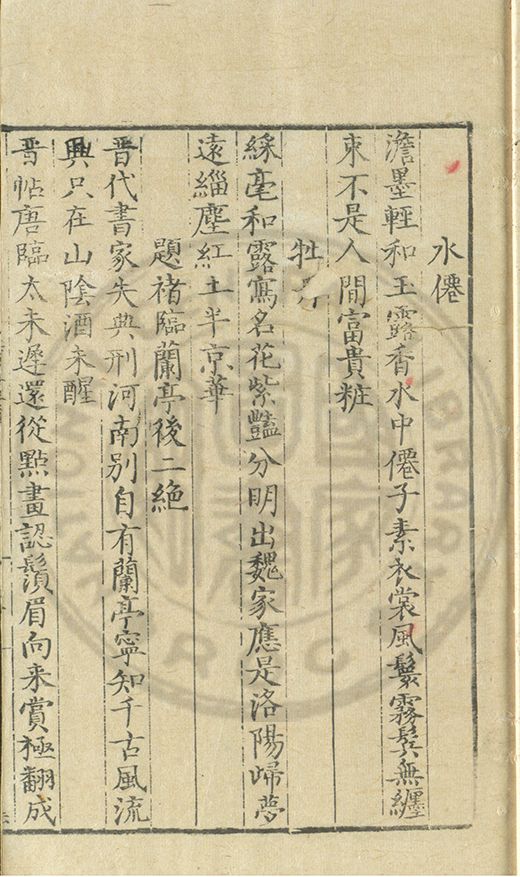 水僊
澹墨輕和玉露香水中僊子素衣裳風鬟霧鬢無纏
束不是人間富貴粧
牡丹
綵毫和露寫名花紫豔分明出魏家應是洛陽歸夢
遠緇塵紅土半京華
題褚臨蘭亭後二絶
晉代書家失典刑河南別自有蘭亭寧知千古風流
興只在山陰酒未醒
晉帖唐臨太未遲還從點畫認鬚眉向来賞極翻成